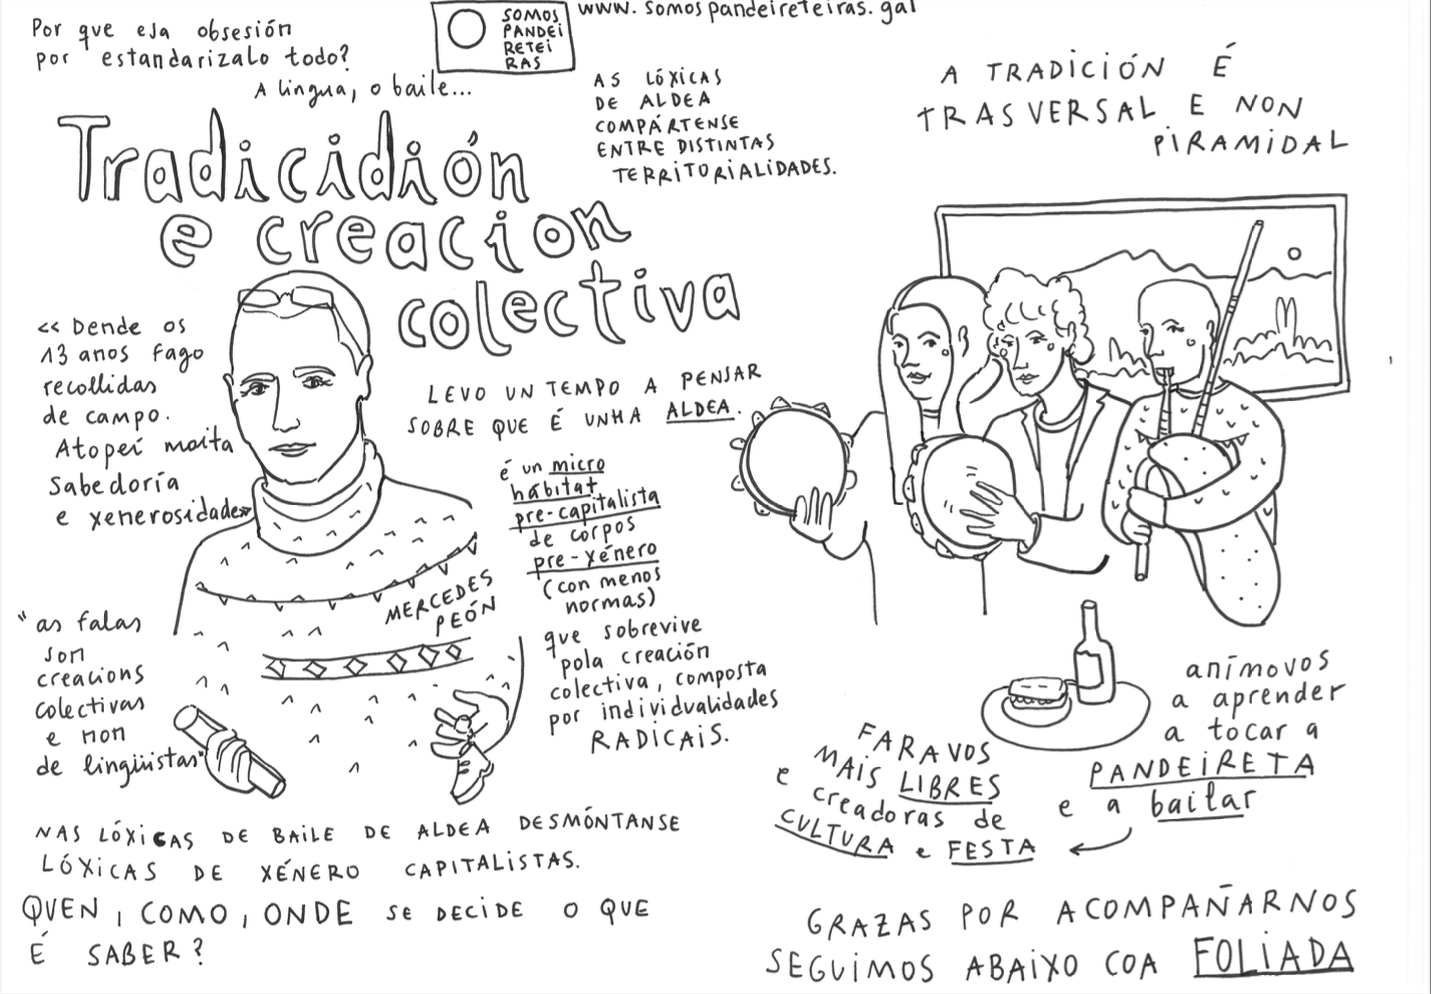 Por que esa obsesión
por estandarizalo todo?
A lingua, o baile...
SOMOS
PANDEI
RETEI
RAS
www.somospandeireteiras.gal
AS LÓXICAS
DE ALDEA
COMPÁRTENSE
ENTRE DISTINTAS
TERRITORIALIDADES.
A TRADICIÓN É
TRASVERSAL E NON
PIRAMIDAL
Tradicidión
e creacion
colectiva
<< Dende os
13 anos fago
recollidas
de campo.
Atopei moita
Sabedoría
e xenerosidade>>
LEVO UN TEMPO A PENSAR
SOBRE QUE É UNHA ALDEA.
é un micro
hábitat
pre-capitalista
de corpos
pre-xénero
(con menos
normas)
que sobrevive
pola creación
colectiva, composta
por individualidades
RADICAIS.
MERCEDES
PEÓN
"as falas
son
creacions
colectivas
e non
de lingüistas"
NAS LÓXICAS DE BAILE DE ALDEA DESMÓNTANSE
LÓXICAS DE XÉNERO CAPITALISTAS.
QUEN, COMO, ONDE SE DECIDE O QUE
É SABER?
anímovos
a aprender
a tocar a
PANDEIRETA
e a bailar
FARAVOS
MAIS LIBRES
e creadoras de
CULTURA e FESTA
GRAZAS POR ACOMPAÑARNOS
SEGUIMOS ABAIXO COA FOLIADA